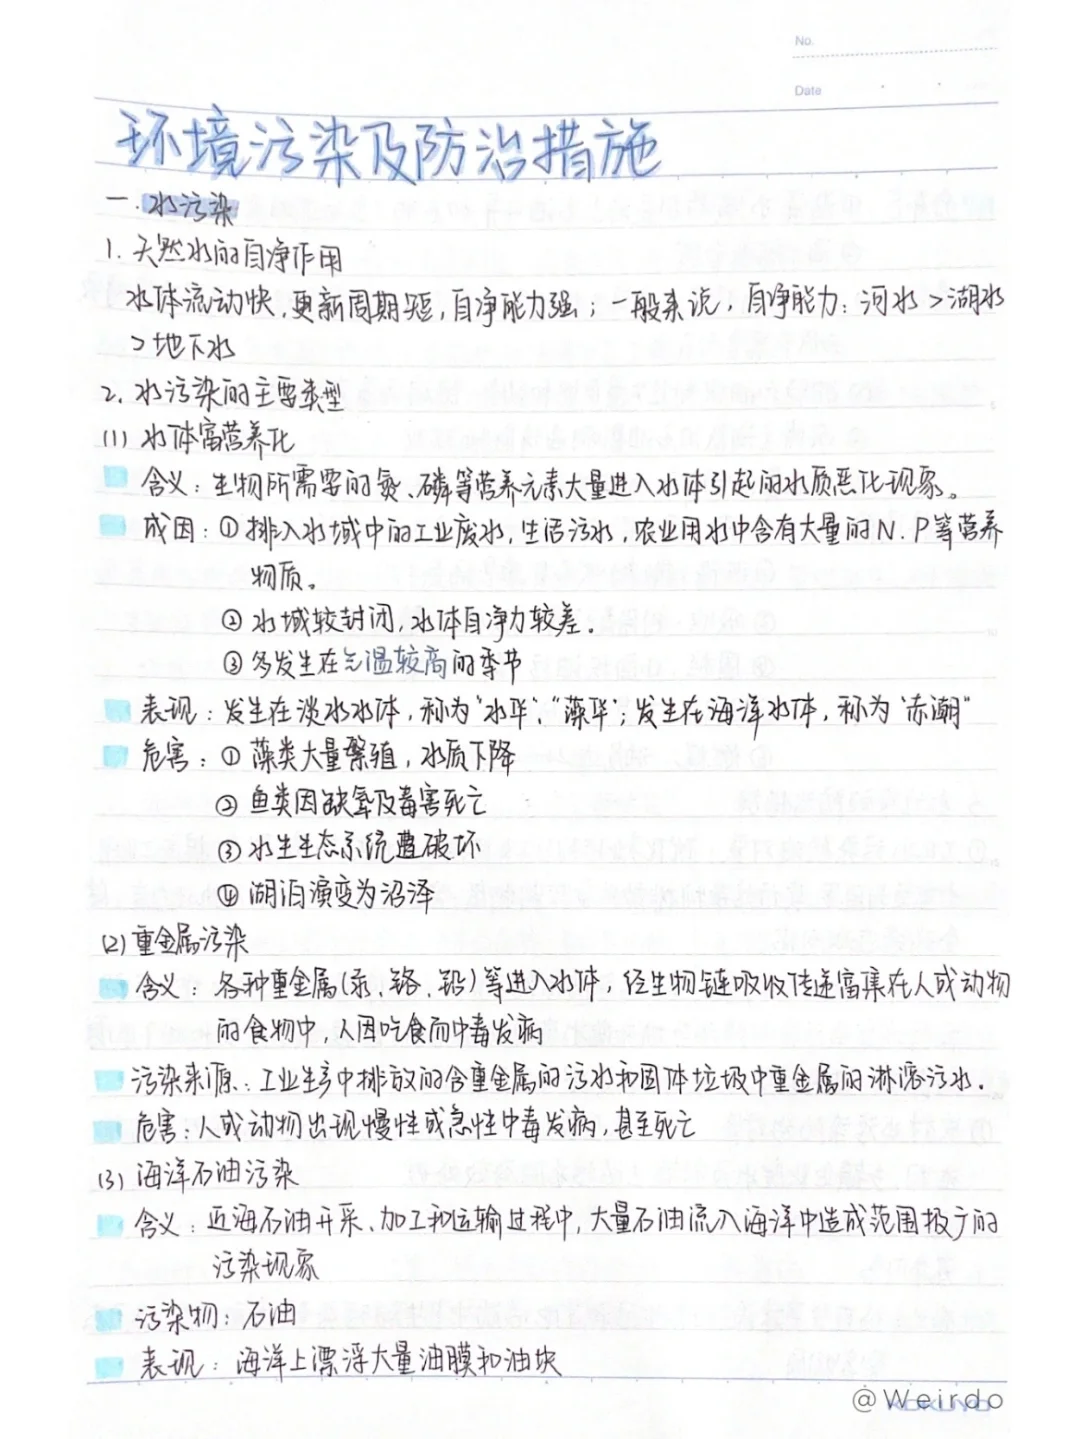 No.
Date
环境污染及防治措施
一.水污染
1.天然水的自净作用
水体流动快,更新周期短,自净能力强;一般来说,自净能力:河水>湖水
>地下水
2.水污染的主要类型
(1)水体富营养化
含义:生物所需要的氮、磷等营养元素大量进入水体引起的水质恶化现象。
成因:①排入水域中的工业废水,生活污水,农业用水中含有大量的N.P等营养
物质。
②水域较封闭,水体自净力较差.
③多发生在气温较高的季节
表现:发生在淡水水体,称为"水华","藻华";发生在海洋水体,称为"赤潮"
危害:①藻类大量繁殖,水质下降
②鱼类因缺氧及毒害死亡
③水生生态系统遭破坏
④湖泊演变为沼泽
(2)重金属污染
含义:各种重金属(汞、铬、铅)等进入水体,经生物链吸收传递富集在人或动物
的食物中,人因吃食而中毒发病
污染来源:工业生产中排放的含重金属的污水和固体垃圾中重金属的淋溶污水.
危害:人或动物出现慢性或急性中毒发病,甚至死亡
(3)海洋石油污染
含义:近海石油开采、加工和运输过程中,大量石油流入海洋中造成范围极广的
污染现象
污染物:石油
表现:海洋上漂浮大量油膜和油块
@Weirdo
KOKUYO